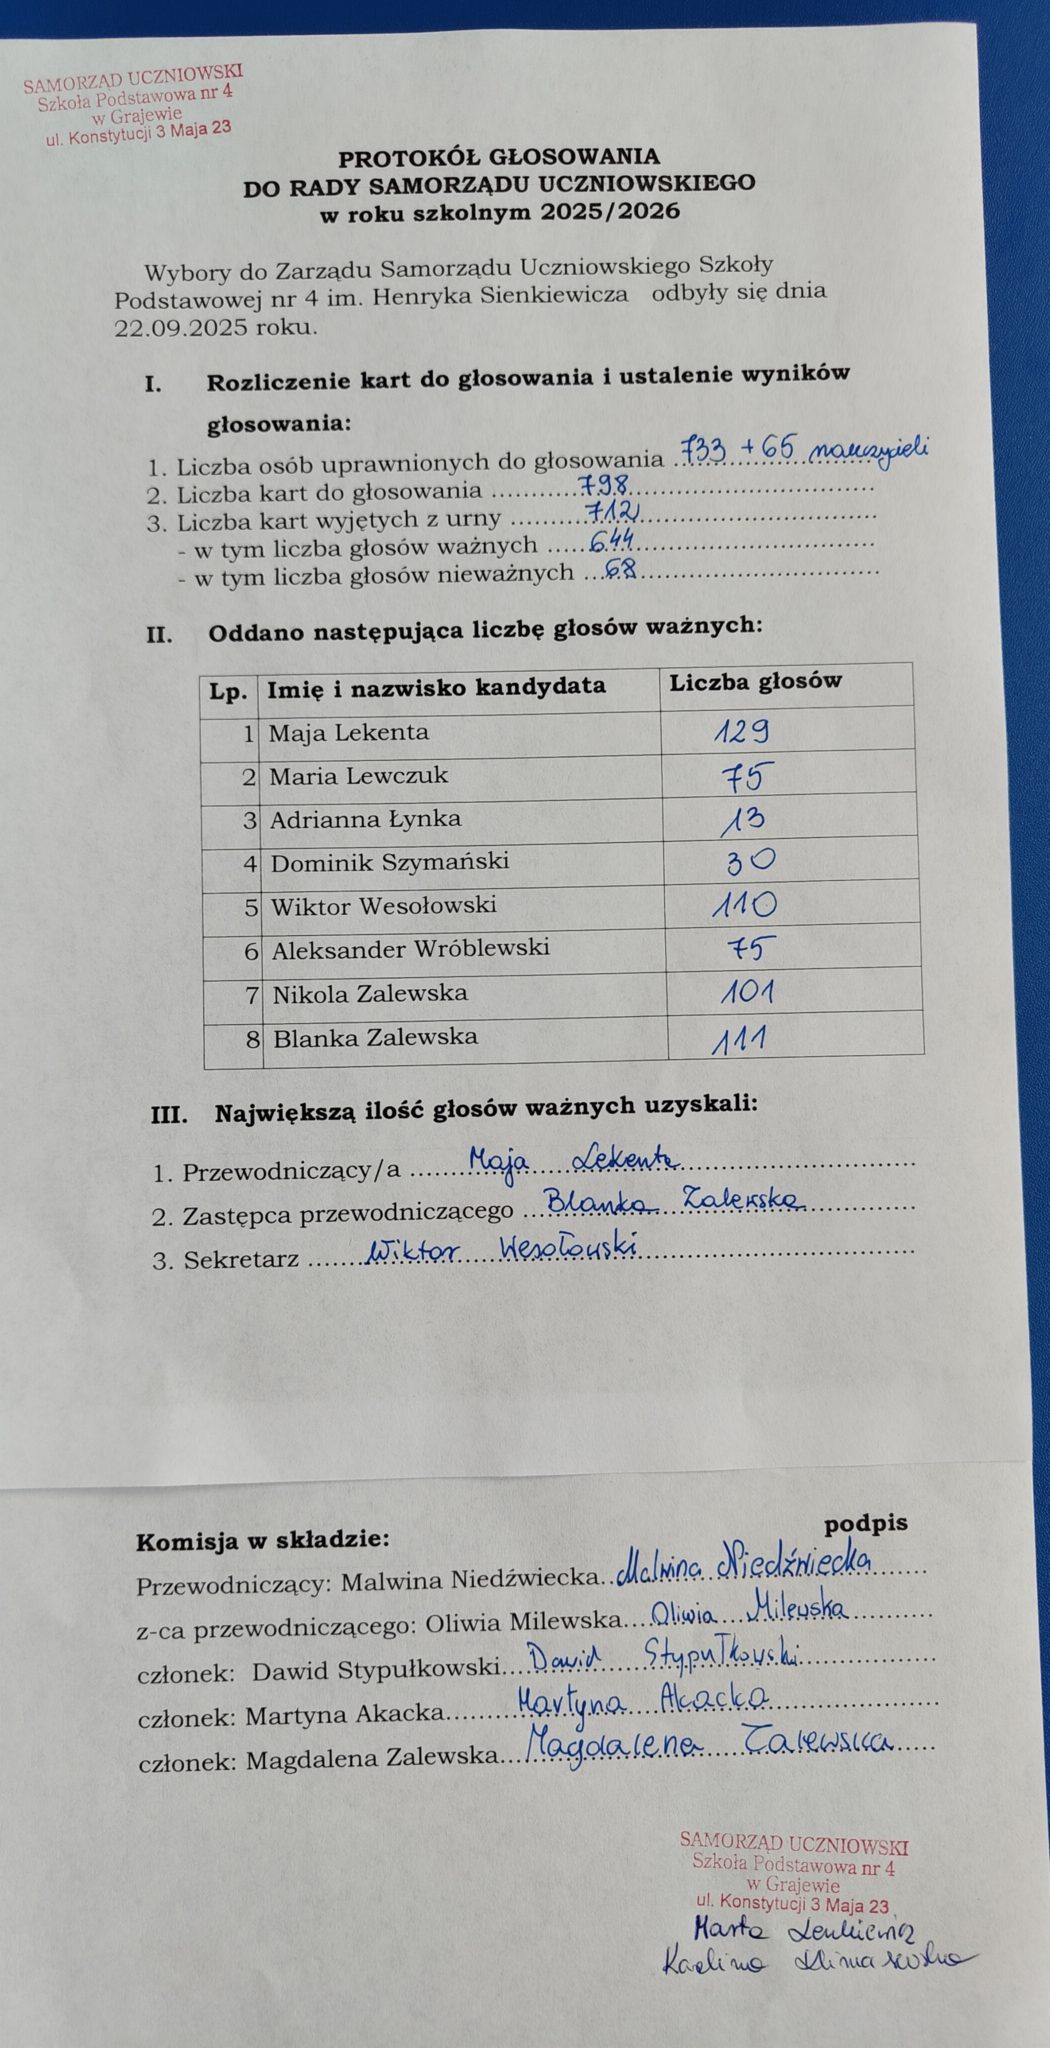 SAMORZĄD UCZNIOWSKI
Szkoła Podstawowa nr 4
w Grajewie
ul. Konstytucji 3 Maja 23
PROTOKÓŁ GŁOSOWANIA
DO RADY SAMORZĄDU UCZNIOWSKIEGO
w roku szkolnym 2025/2026
Wybory do Zarządu Samorządu Uczniowskiego Szkoły
Podstawowej nr 4 im. Henryka Sienkiewicza odbyły się dnia
22.09.2025 roku.
I. Rozliczenie kart do głosowania i ustalenie wyników
głosowania:
1. Liczba osób uprawnionych do głosowania 733 + 65 nauczycieli
2. Liczba kart do głosowania 798
3. Liczba kart wyjętych z urny 712
- w tym liczba głosów ważnych 644
- w tym liczba głosów nieważnych 68
II. Oddano następująca liczbę głosów ważnych:
Lp. Imię i nazwisko kandydata Liczba głosów
1 Maja Lekenta 129
2 Maria Lewczuk 75
3 Adrianna Łynka 13
4 Dominik Szymański 30
5 Wiktor Wesołowski 110
6 Aleksander Wróblewski 75
7 Nikola Zalewska 101
8 Blanka Zalewska 111
III. Największą ilość głosów ważnych uzyskali:
1. Przewodniczący/a Maja Lekenta
2. Zastępca przewodniczącego Blanka Zalewska
3. Sekretarz Wiktor Wesołowski
Komisja w składzie: podpis
Przewodniczący: Malwina Niedźwiecka Malwina Niedźwiecka
z-ca przewodniczącego: Oliwia Milewska Oliwia Milewska
członek: Dawid Stypułkowski Dawid Stypułkowski
członek: Martyna Akacka Martyna Akacka
członek: Magdalena Zalewska Magdalena Zalewska
SAMORZĄD UCZNIOWSKI
Szkoła Podstawowa nr 4
w Grajewie
ul. Konstytucji 3 Maja 23
Marta
Karlina